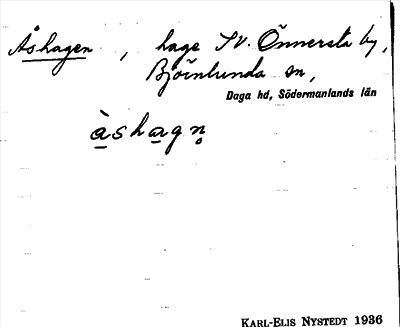 Åshagen, hage SV. Önnersta by,
Björnlunda sn,
Daga hd, Södermanlands län
à̲sha̲gn̥
KARL-ELIS NYSTEDT 1936